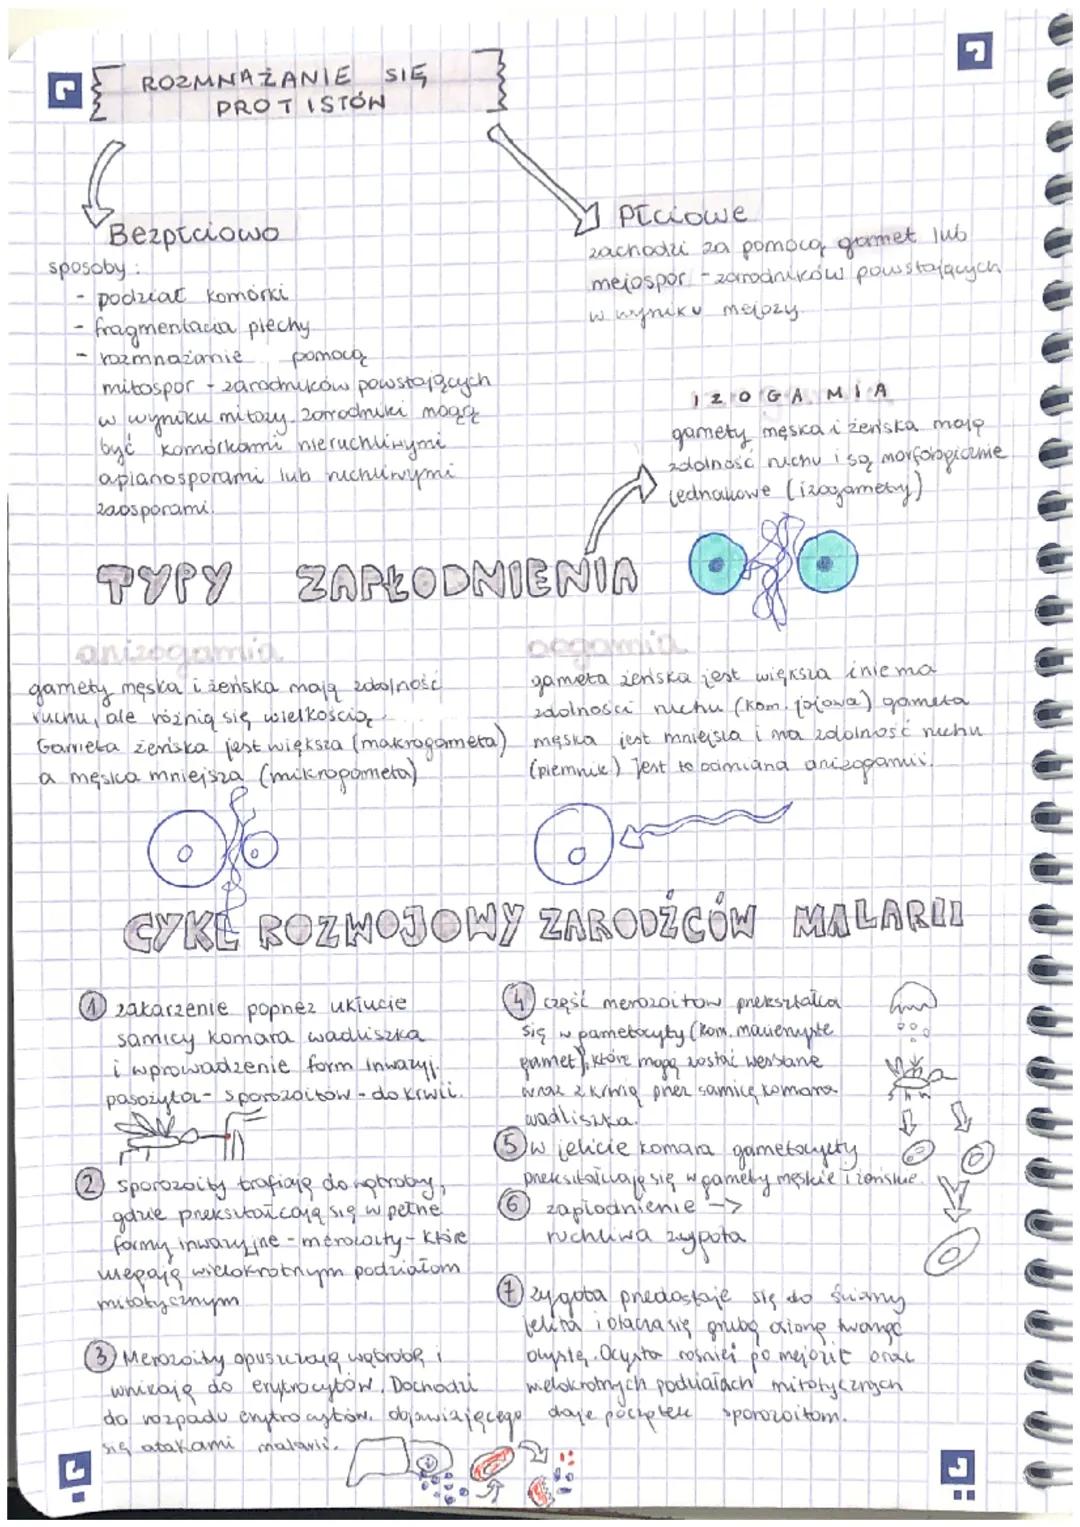 ROZMNAŻANIE SIĘ
PROTISTÓW
Bezpłciowo
sposoby:
- podział komórki
- fragmentacja plechy
- rozmnażanie pomocą
mitospor - zarodników powstających
w wyniku mitozy. zarodniki mogą
być komórkami nieruchliwymi
aplanosporami lub ruchliwymi
zoosporami.
Płciowe
zachodzi za pomocą gamet lub
mejospor - zarodników powstających
w wyniku mejozy
IZOGAMIA
gamety męska i żeńska mają
zdolność ruchu i są morfologicznie
jednakowe (izogamety)
TYPY ZAPŁODNIENIA
anizogamia
gamety męska i żeńska mają zdolność
ruchu, ale różnią się wielkością
Gameta żeńska jest większa (makrogameta)
a męska mniejsza (mikrogameta)
oogamia
gameta żeńska jest większa i nie ma
zdolności ruchu (kom. jajowa) gameta
męska jest mniejsza i ma zdolność ruchu
(plemnik) Jest to odmiana anizogamii.
CYKL ROZWOJOWY ZARODŹCÓW MALARII
1 zakarzenie poprzez ukłucie
samicy komara wadliszka
i wprowadzenie form inwazyj.
pasożyta - sporozoitów - do krwii.
2 sporozoity trafiają do wątroby,
gdzie przekształcają się w pełne
formy inwazyjne - merozoity - które
ulegają wielokrotnym podziałom
mitotycznym
3 Merozoity opuszczają wątrobę i
wnikają do erytrocytów. Dochodzi
do rozpadu erytrocytów. objawiającego
się atakami malarii.
4 część merozoitów przekształca
się w gametocyty (kom. macierzyste
gamet), które mogą zostać wessane
wraz z krwią przez samicę komara
wadliszka.
5 w jelicie komara gametocyty
przekształcają się w gamety męskie i żeńskie.
6 zapłodnienie ->
ruchliwa zygota
7 zygota przedostaje się do ściany
jelita i otacza się grubą osłoną tworząc
oocystę. Ocysta rośnie i po mejozie oraz
wielokrotnych podziałach mitotycznych
daje początek sporozoitom.